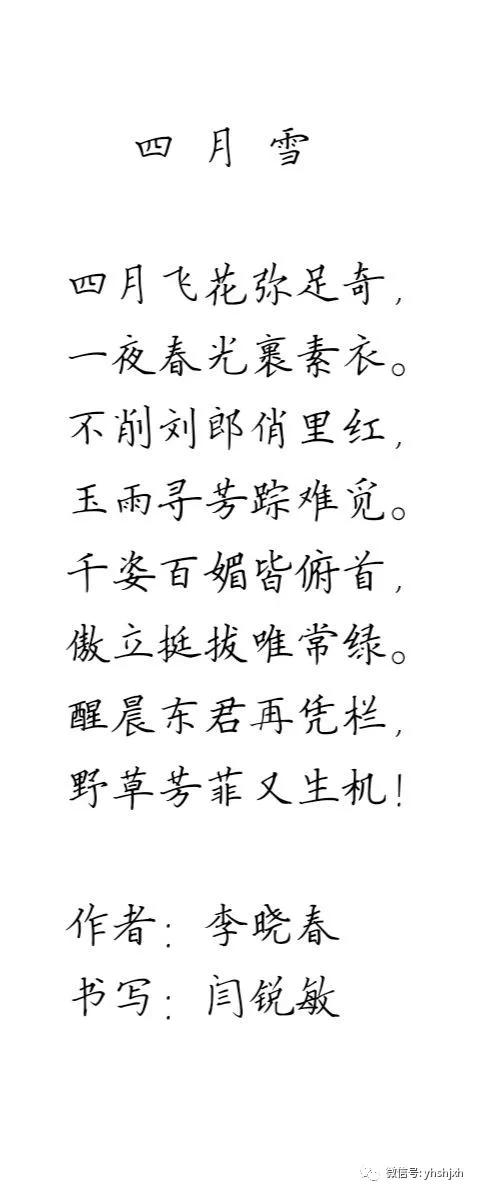 四月雪
四月飞花弥足奇，
一夜春光裹素衣。
不削刘郎俏里红，
玉雨寻芳踪难觅。
千姿百媚皆俯首，
傲立挺拔唯常绿。
醒晨东君再凭栏，
野草芳菲又生机！
作者：李晓春
书写：闫锐敏
微信号: yhshjxh